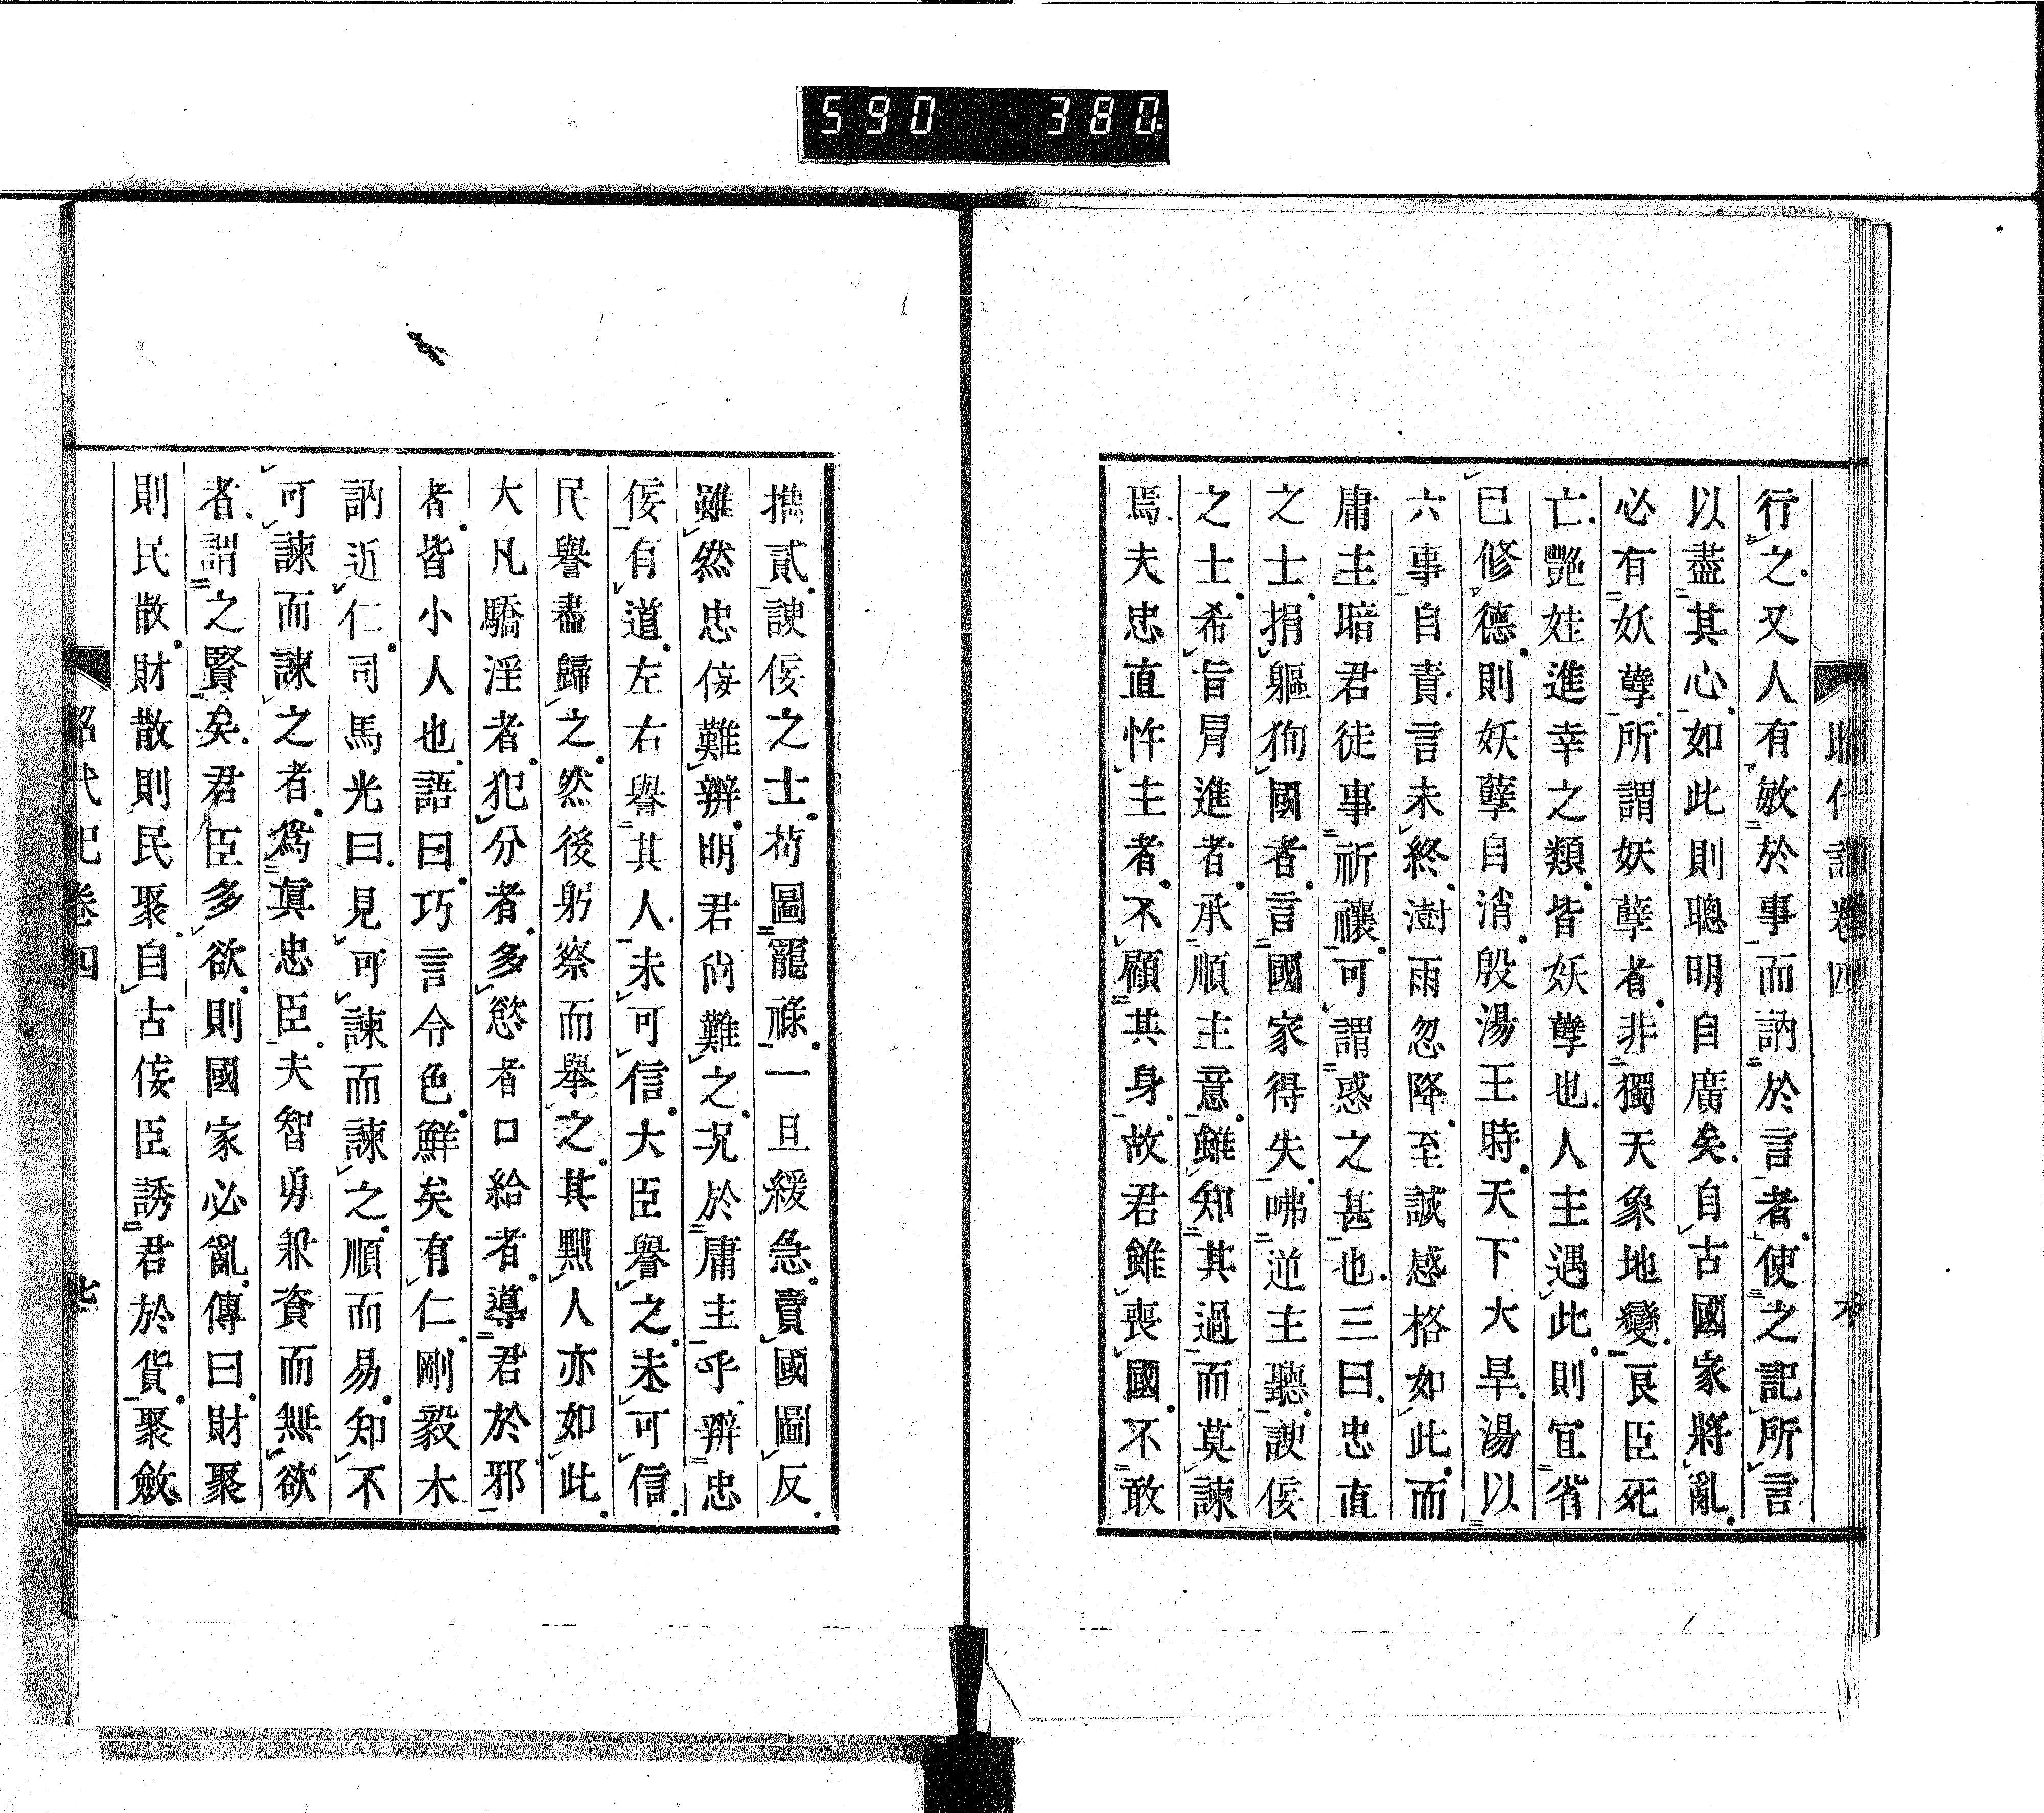 590 380
昭代記卷四
行之又人有敏於事而訥於言者使之記所言
以盡其心如此則聰明自廣矣自古國家將亂
必有妖孽所謂妖孽者非獨天象地變良臣死
亡艷娃進幸之類皆妖孽也人主遇此則宜省
已修德則妖孽自消殷湯王時天下大旱湯以
六事自責言未終澍雨忽降至誠感格如此而
庸主暗君徒事祈禳可謂惑之甚也三曰忠直
之士捐軀狥國者言國家得失咈逆主聽諛佞
之士希旨冐進者承順主意雖知其過而莫諫
焉夫忠直忤主者不顧其身故君雖喪國不敢
攜貳諛佞之士苟圖寵祿一旦緩急賣國圖反
雖然忠佞難辨明君尙難之况於庸主乎辨忠
佞有道左右譽其人未可信大臣譽之未可信
民譽盡歸之然後躬察而舉之其黜人亦如此
大凡驕淫者犯分者多慾者口給者導君於邪
者皆小人也語曰巧言令色鮮矣有仁剛毅木
訥近仁司馬光曰見可諫而諫之順而易知不
可諫而諫之者爲眞忠臣夫智勇兼資而無欲
者謂之賢矣君臣多欲則國家必亂傳曰財聚
則民散財散則民聚自古佞臣誘君於貨聚斂
昭代記卷四